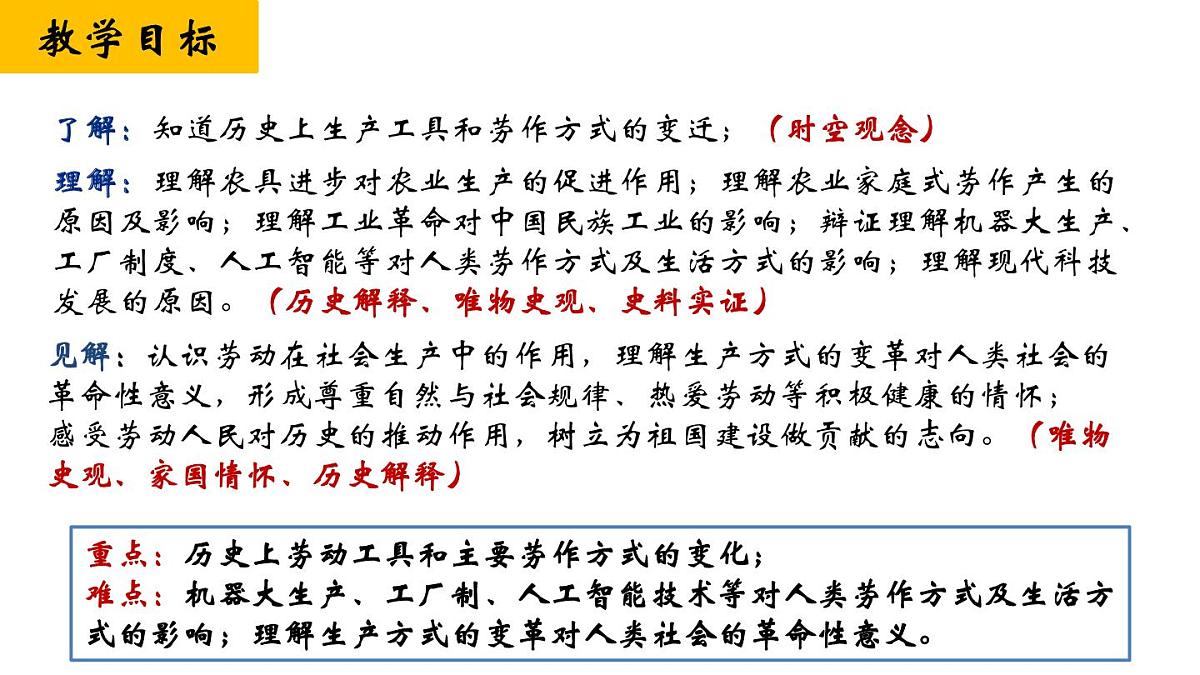 教学目标
了解：知道历史上生产工具和劳作方式的变迁；（时空观念）
理解：理解农具进步对农业生产的促进作用；理解农业家庭式劳作产生的
原因及影响；理解工业革命对中国民族工业的影响；辩证理解机器大生产、
工厂制度、人工智能等对人类劳作方式及生活方式的影响；理解现代科技
发展的原因。（历史解释、唯物史观、史料实证）
见解：认识劳动在社会生产中的作用，理解生产方式的变革对人类社会的
革命性意义，形成尊重自然与社会规律、热爱劳动等积极健康的情怀；
感受劳动人民对历史的推动作用，树立为祖国建设做贡献的志向。（唯物
史观、家国情怀、历史解释）
重点：历史上劳动工具和主要劳作方式的变化；
难点：机器大生产、工厂制、人工智能技术等对人类劳作方式及生活方
式的影响；理解生产方式的变革对人类社会的革命性意义。